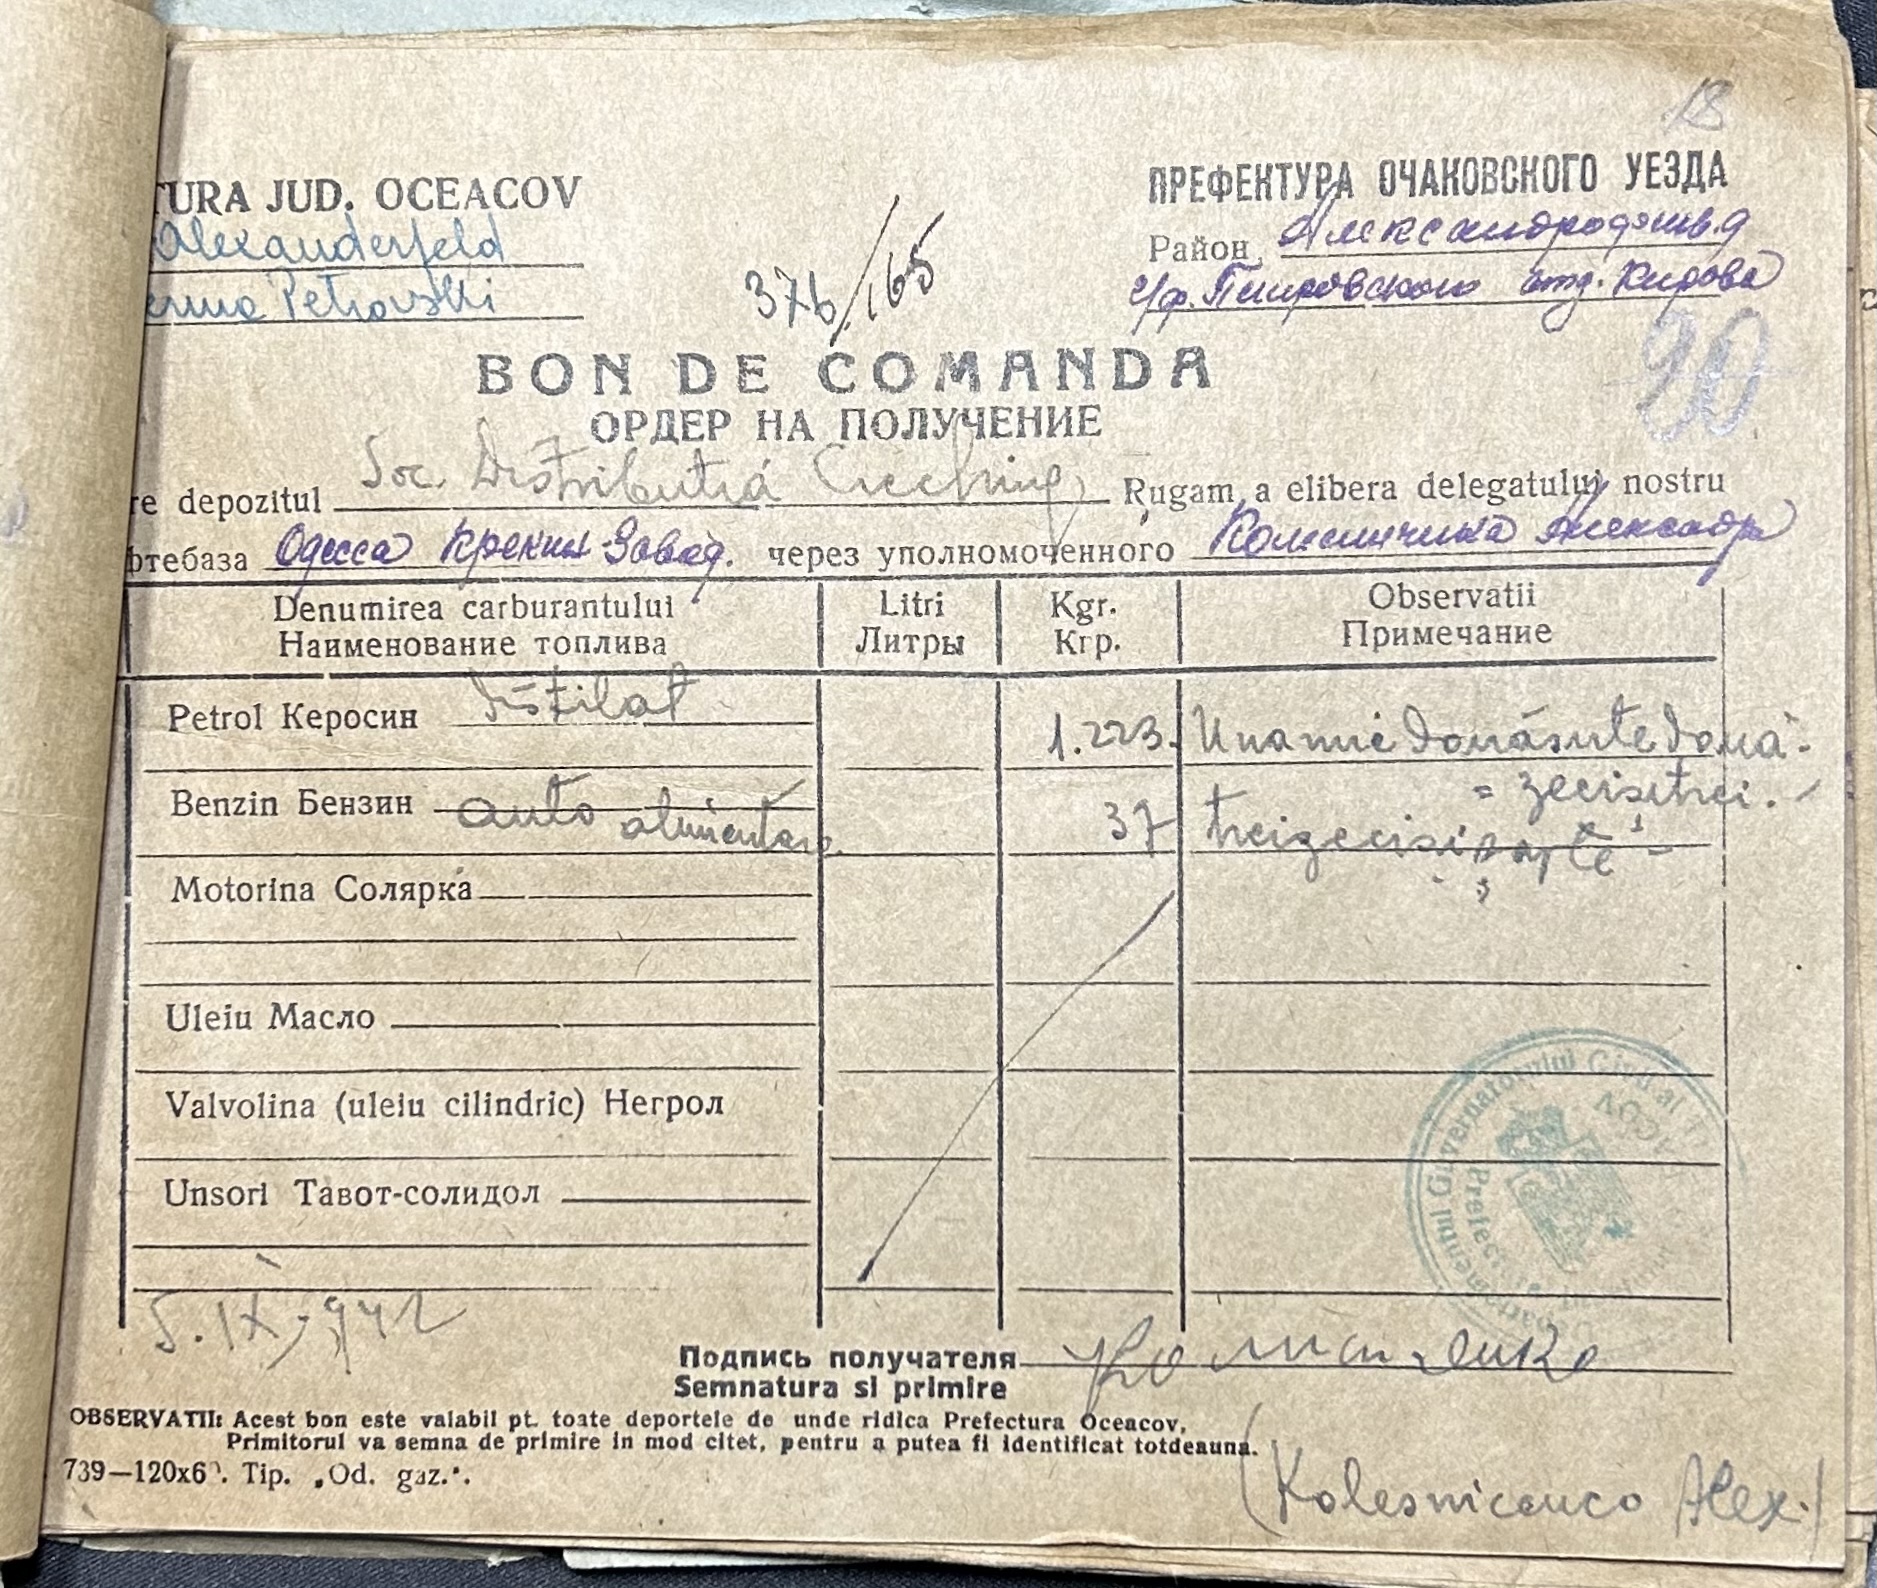 18
TURA JUD. OCEACOV
ПРЕФЕКТУРА ОЧАКОВСКОГО УЕЗДА
Alexanderfeld
Район
erma Petrovski
376/165
с/ф. Петровского отд. Кирова
90
BON DE COMANDA
ОРДЕР НА ПОЛУЧЕНИЕ
re depozitul Soc. Distributia Cracking Rugam a elibera delegatului nostru
фтебаза Одесса Крекин-Завод. через уполномоченного
Denumirea carburantului Litri Kgr. Observatii
Наименование топлива Литры Кгр. Примечание
Petrol Керосин distilat 1.223. Unamie douăsutedouă-
= zecisitrei.
Benzin Бензин auto alimentare 37 treizecisișapte
Motorina Солярка
Uleiu Масло
Valvolina (uleiu cilindric) Негрол
Unsori Тавот-солидол
Guvernatorului Civil al
Prefectura
5.IX.942
Подпись получателя
Semnatura si primire
OBSERVATII: Acest bon este valabil pt. toate deportele de unde ridica Prefectura Oceacov,
Primitorul va semna de primire in mod citet, pentru a putea fi identificat totdeauna.
739—120x6 . Tip. „Od. gaz.".
(Kolesnicenco Alex.)